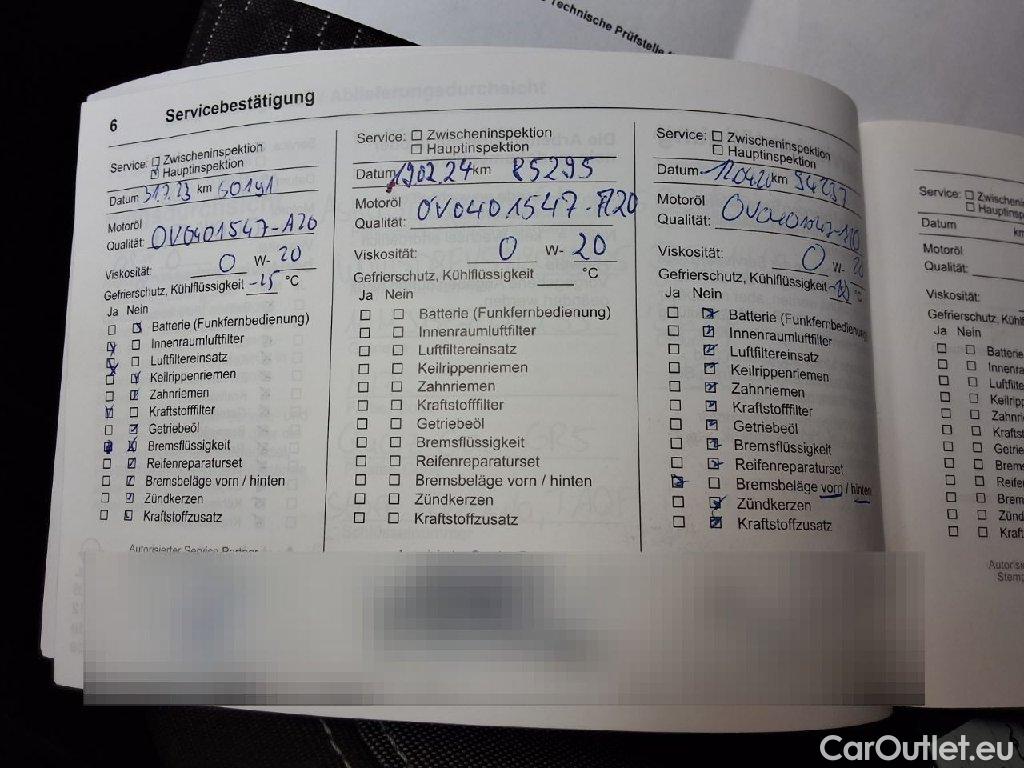 Technische Prüfstelle
6 Servicebestätigung
Service: Zwischeninspektion
Hauptinspektion
Datum km
Motoröl
Qualität: OV0401547-A20
Viskosität: 0 W- 20
Gefrierschutz, Kühlflüssigkeit -25 °C
Ja Nein
Batterie (Funkfernbedienung)
Innenraumluftfilter
Luftfiltereinsatz
Keilrippenriemen
Zahnriemen
Kraftstofffilter
Getriebeöl
Bremsflüssigkeit
Reifenreparaturset
Bremsbeläge vorn / hinten
Zündkerzen
Kraftstoffzusatz
Autorisierter Service Partner
Service: Zwischeninspektion
Hauptinspektion
Datum 1902.24 km 85295
Motoröl
Qualität: OV0401547-A20
Viskosität: 0 W- 20
Gefrierschutz, Kühlflüssigkeit °C
Ja Nein
Batterie (Funkfernbedienung)
Innenraumluftfilter
Luftfiltereinsatz
Keilrippenriemen
Zahnriemen
Kraftstofffilter
Getriebeöl
Bremsflüssigkeit
Reifenreparaturset
Bremsbeläge vorn / hinten
Zündkerzen
Kraftstoffzusatz
Service: Zwischeninspektion
Hauptinspektion
Datum km 94237
Motoröl
Qualität:
Viskosität: 0 W- 20
Gefrierschutz, Kühlflüssigkeit °C
Ja Nein
Batterie (Funkfernbedienung
Innenraumluftfilter
Luftfiltereinsatz
Keilrippenriemen
Zahnriemen
Kraftstofffilter
Getriebeöl
Bremsflüssigkeit
Reifenreparaturset
Bremsbeläge vorn / hinten
Zündkerzen
Kraftstoffzusatz
Service: Zwischeninsp
Hauptinsp
Datum km
Motoröl
Qualität:
Viskosität:
Gefrierschutz, Kühlf
Ja Nein
Batterie
Innenra
Luftfilte
Keilripp
Zahnri
Kraftst
Getrieb
Brems
Reifen
Brem
Zünd
Kraft
Autoris
Stem
CarOutlet.eu